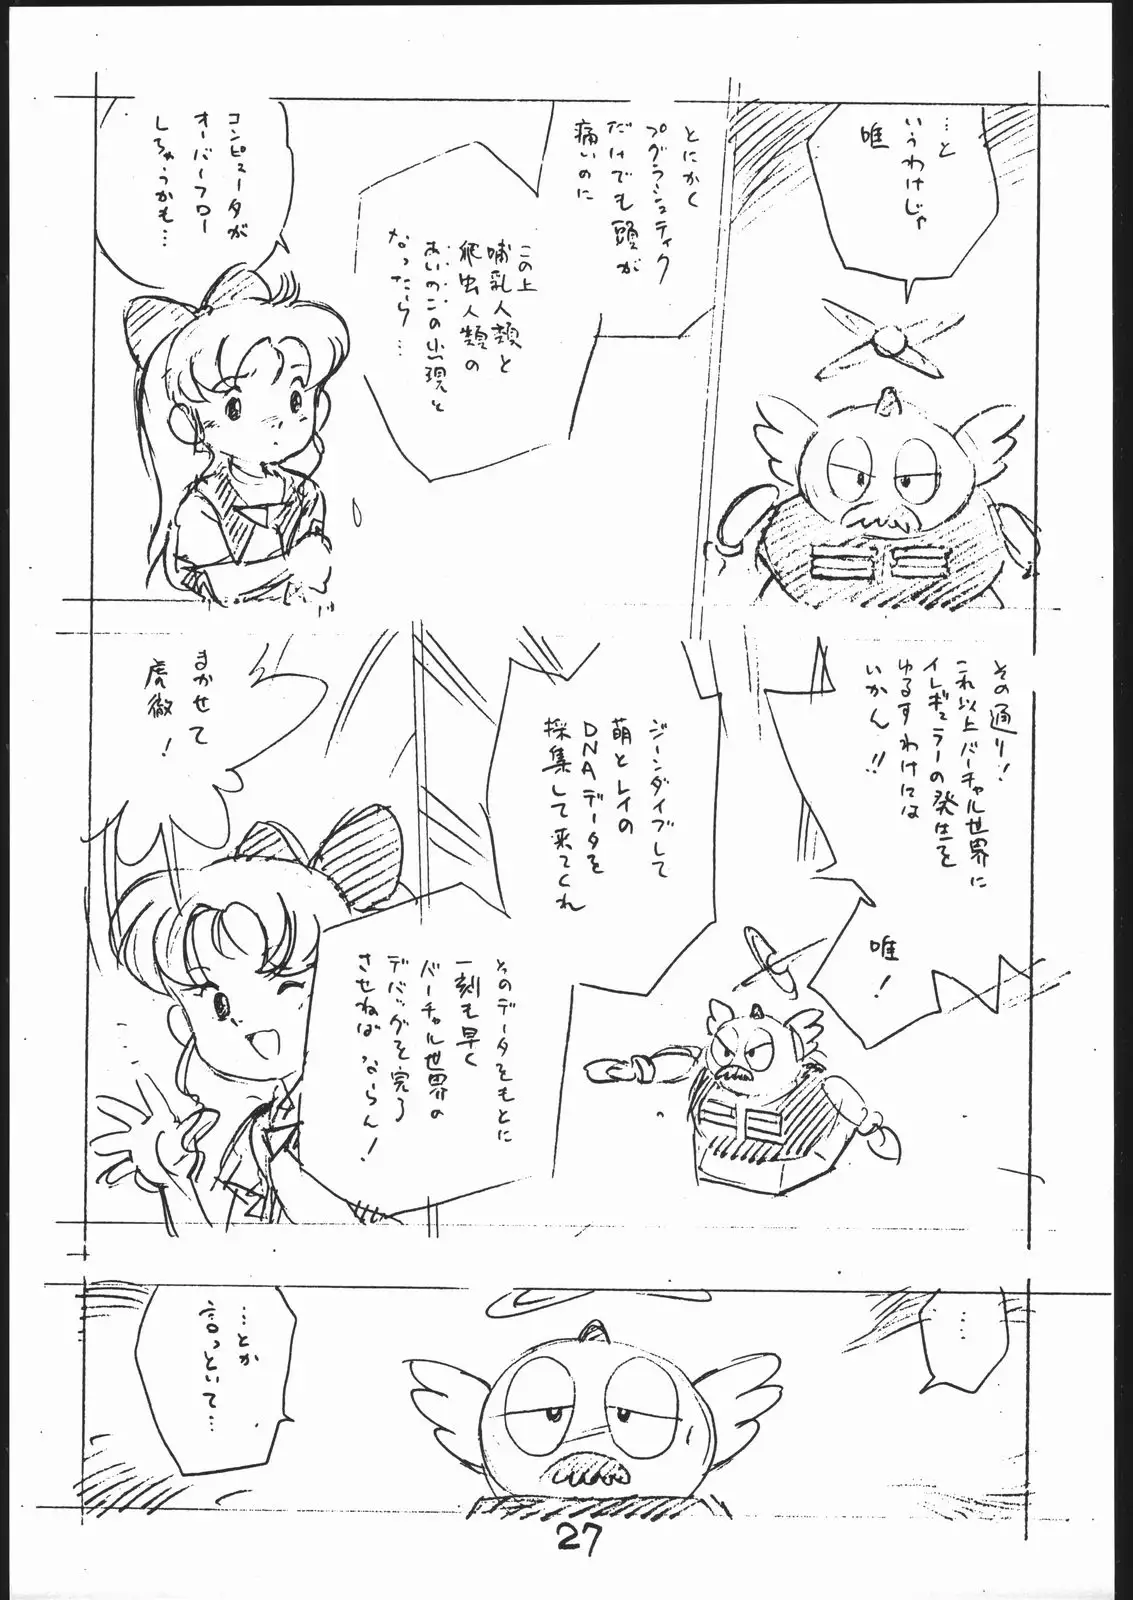 …と
いうわけじゃ
唯
とにかく
プグラシュティク
だけでも頭が
痛いのに
この上
哺乳人類と
爬虫人類の
あいのこの出現と
なったら…
コンピュータが
オーバーフロー
しちゃうかも…
その通り!
これ以上バーチャル世界に
イレギュラーの発生を
ゆるすわけには
いかん!!
唯!
ジーンダイブして
萌とレイの
DNAデータを
採集して来てくれ
そのデータをもとに
一刻も早く
バーチャル世界の
デバッグを完了
させねばならん!
まかせて
虎徹!
…
…とか
言っといて…
27